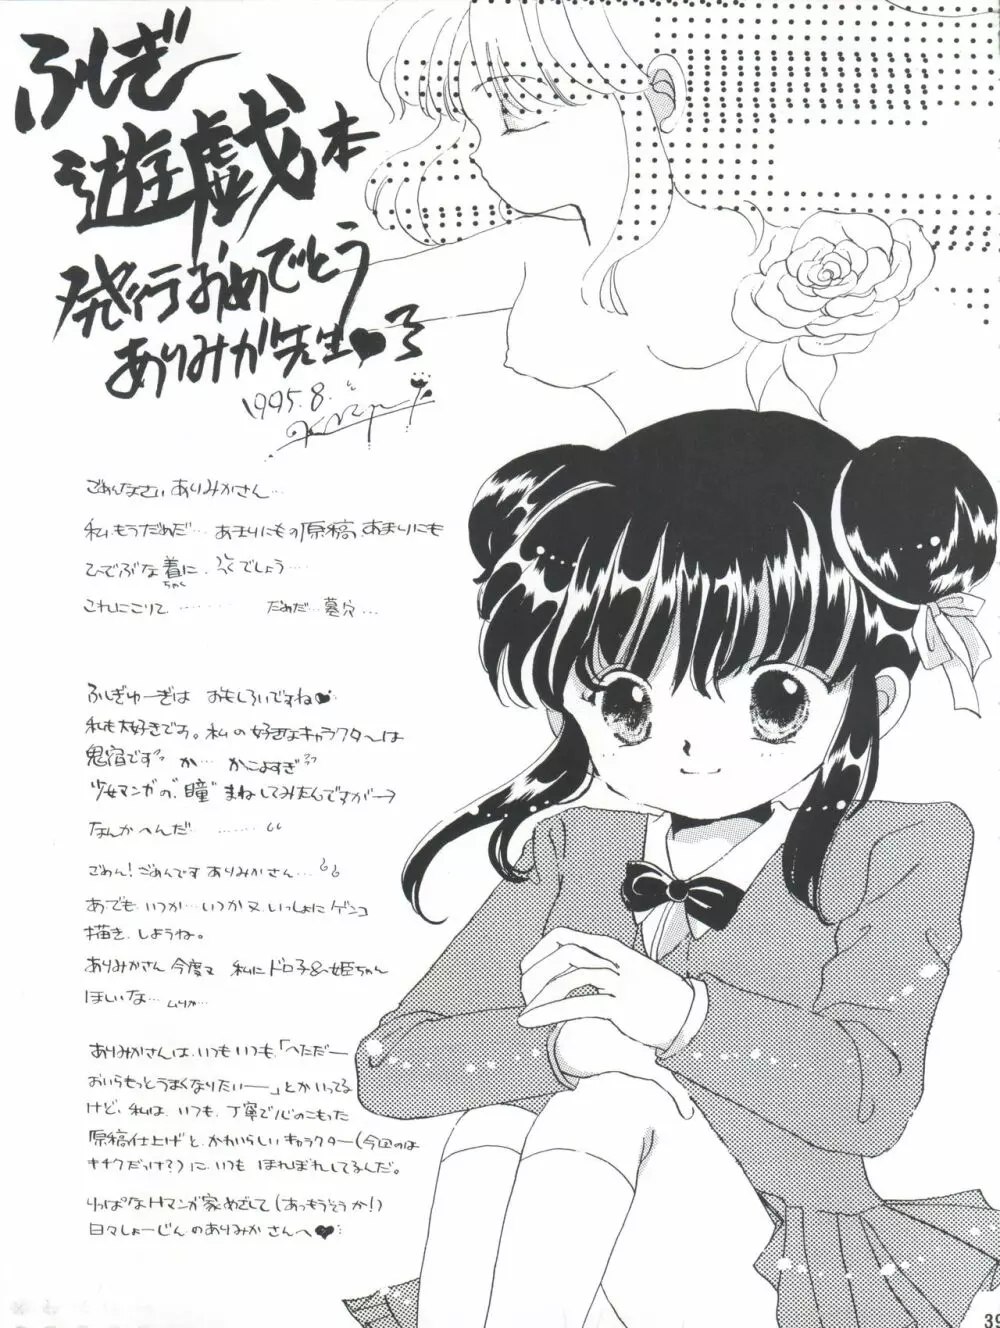 ふしぎ
遊戯本
発行おめでとう
ありみか先生♥
1995.8.
ごめんなさい ありみかさん…
私もうだめだ… あまりにもの原稿、あまりにも
ひでぶな着に、 でしょう…
ちゃく
これにこりて ……… だめだ…墓穴…
ふしぎゆーぎは おもしろいですね♥
私も大好きです。私の好きなキャラクターは
鬼宿です か… かこよすぎ
少女マンガの"瞳"まねしてみたんですが→
なんかへんだ ………
ごめん!ごめんです ありみかさん…
あでも いつか…いつか又 いっしょに ゲンコ
描き、しようね。
ありみかさん 今度又 私に ドロ子&姫ちゃん
ほしいな… ムリか…
ありみかさんは、いつもいつも「へただー
おいらもっとうまくなりたいー」とかいってる
けど、私は、いつも、丁寧で心のこもった
原稿仕上げと、かわいらしいキャラクター(今回のは
キチクだっけ?)に、いつも ほれぼれしてるんだ。
りっぱなHマンガ家めざして(あっもうそうか!)
日々しょーじんのありみかさんへ♥
39